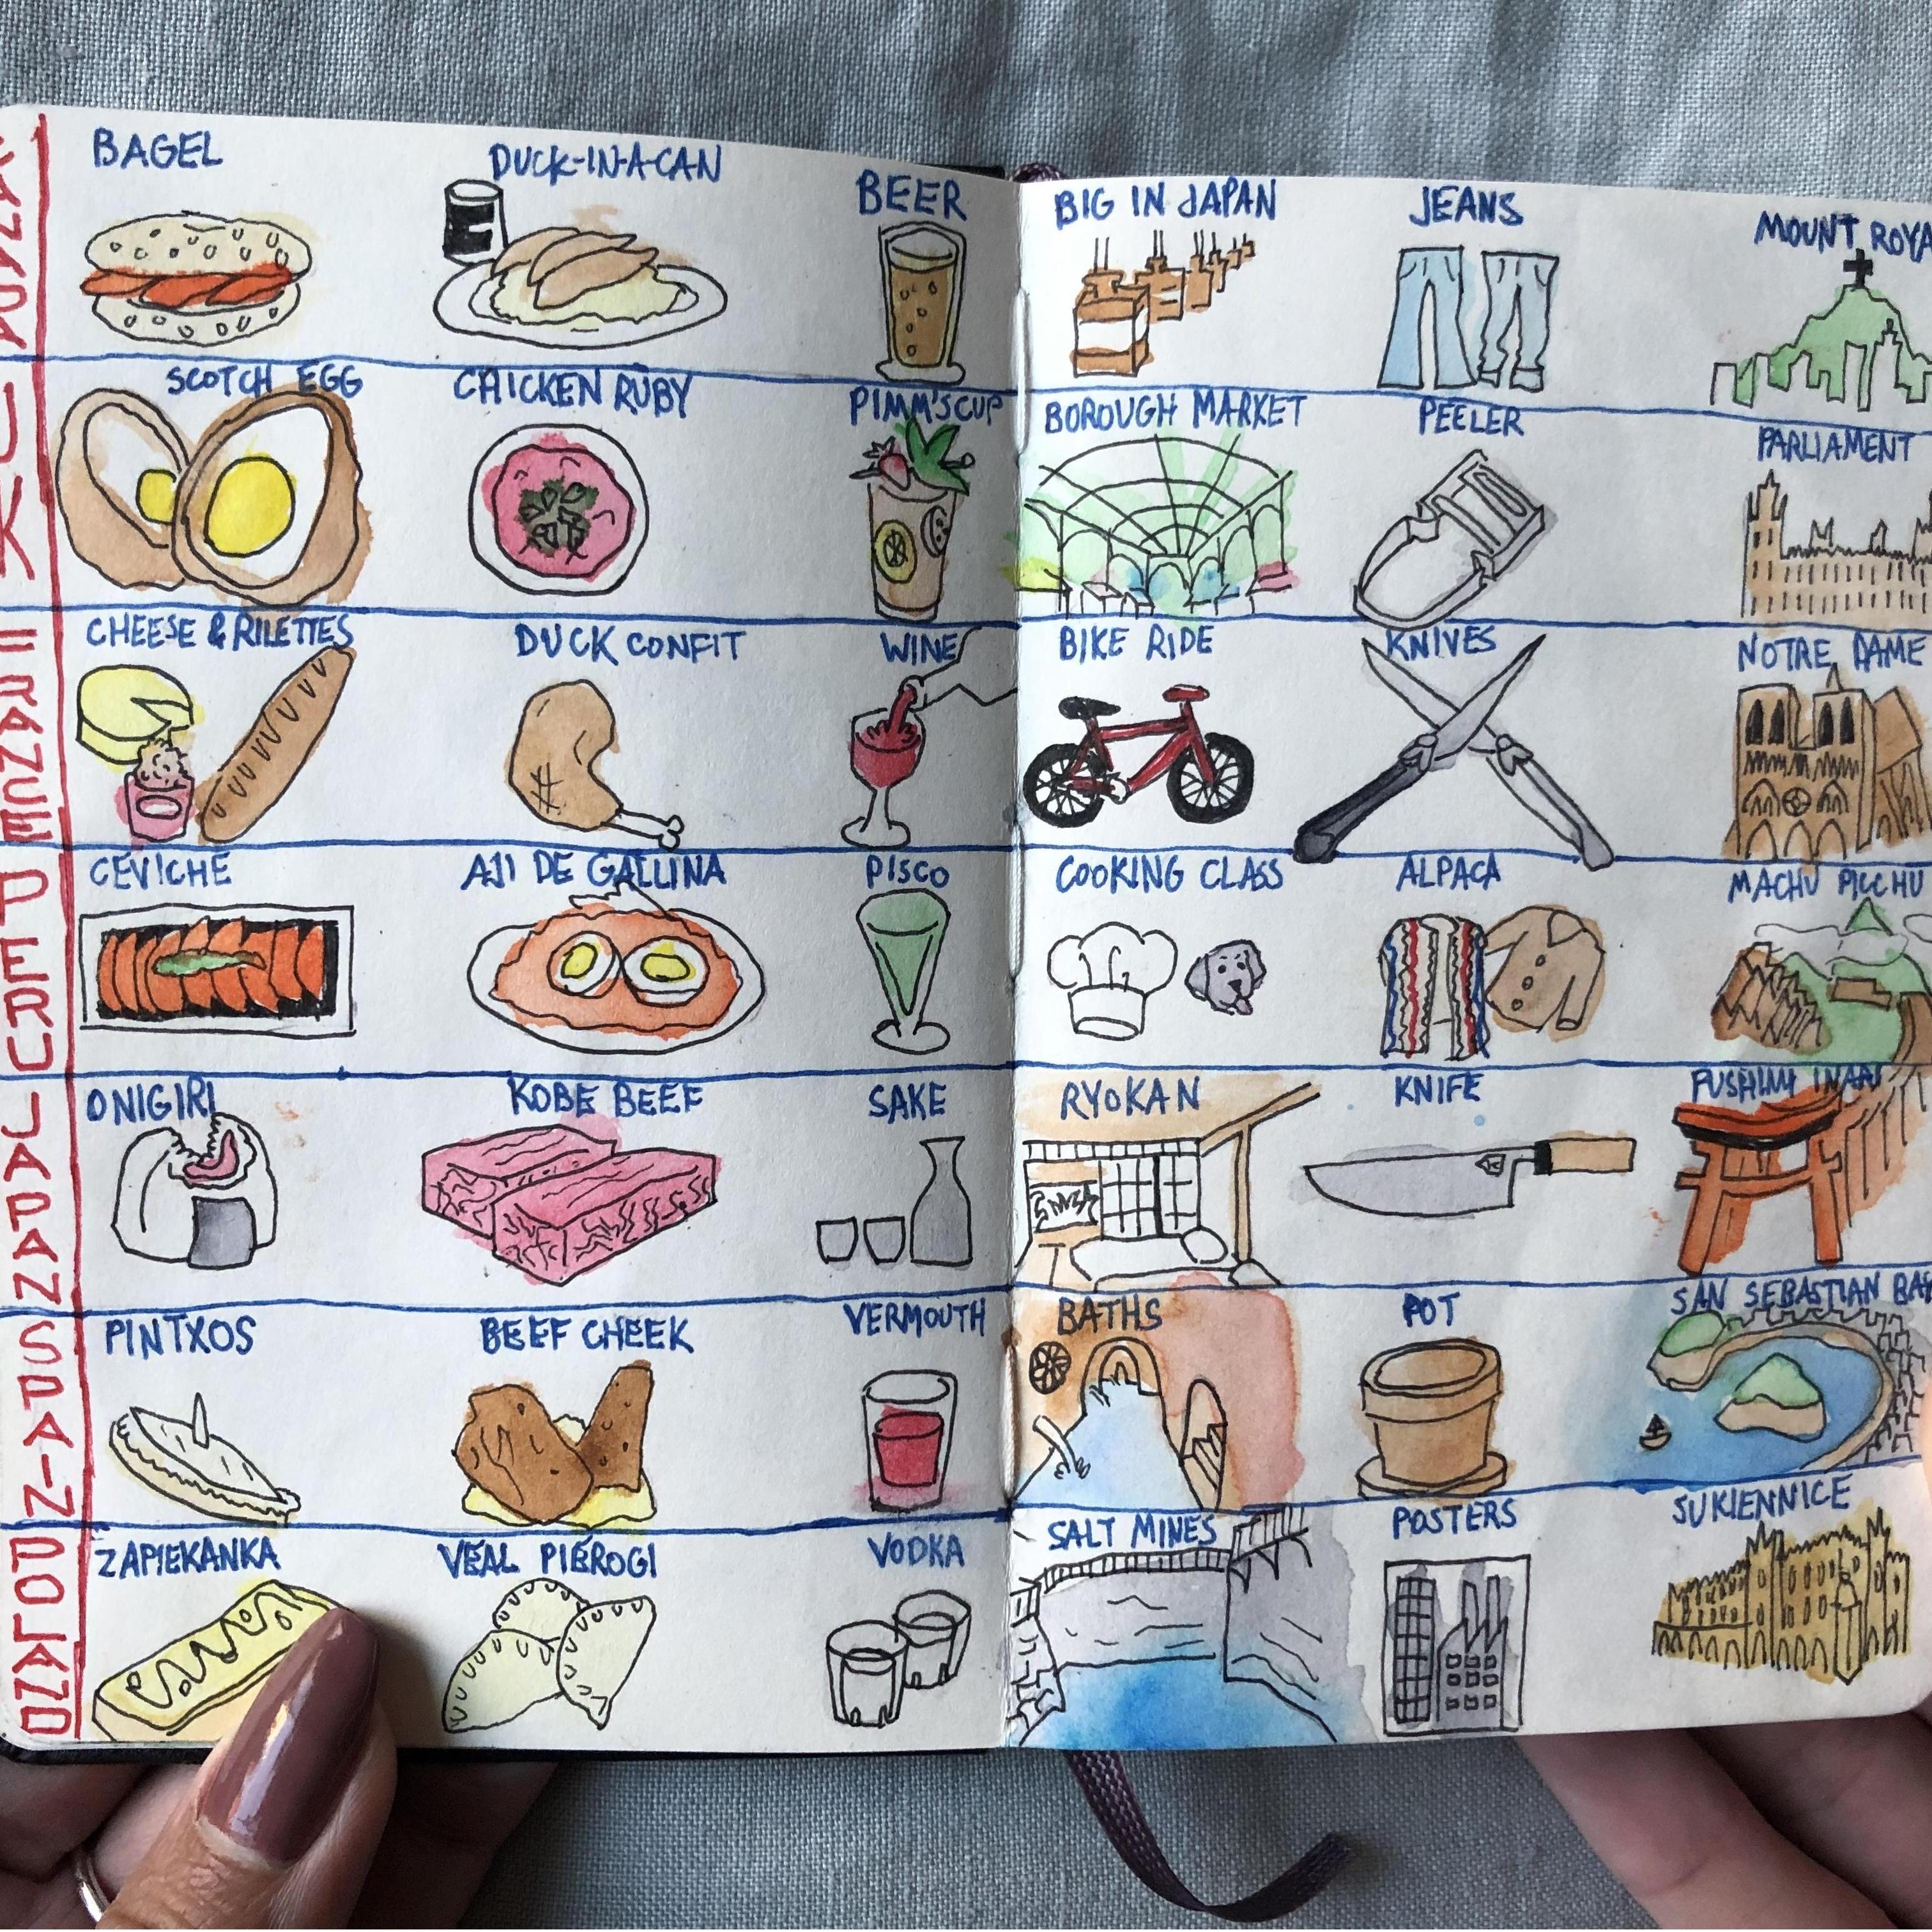 CANADA
BAGEL
DUCK-IN-A-CAN
BEER
BIG IN JAPAN
JEANS
MOUNT ROYA
UK
SCOTCH EGG
CHICKEN RUBY
PIMM'S CUP
BOROUGH MARKET
PEELER
PARLIAMENT
FRANCE
CHEESE & RILETTES
DUCK CONFIT
WINE
BIKE RIDE
KNIVES
NOTRE DAME
PERU
CEVICHE
AJI DE GALLINA
PISCO
COOKING CLASS
ALPACA
MACHU PICCHU
JAPAN
ONIGIRI
KOBE BEEF
SAKE
RYOKAN
KNIFE
FUSHIMI INARI
SPAIN
PINTXOS
BEEF CHEEK
VERMOUTH
BATHS
POT
SAN SEBASTIAN BAY
POLAND
ZAPIEKANKA
VEAL PIEROGI
VODKA
SALT MINES
POSTERS
SUKIENNICE